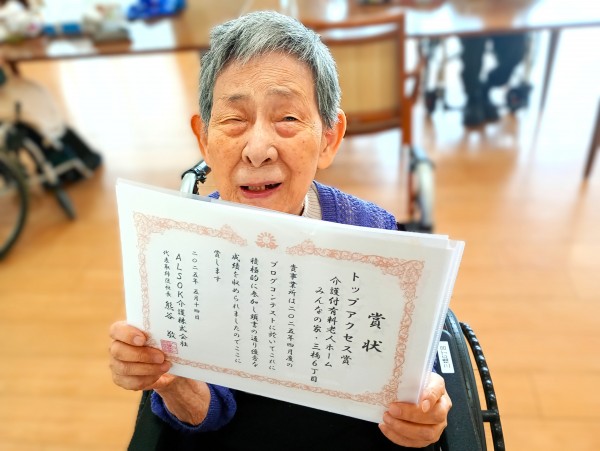 賞状
トップアクセス賞
介護付有料老人ホーム
みんなの家・三橋6丁目
貴事業所は二〇二五年四月度の
ブログコンテストに於いてこれに
積極的に参加し頭書の通り優秀な
成績を収められましたのでここに
賞します
二〇二五年五月十四日
ALSOK介護株式会社
代表取締役社長 熊谷 敬